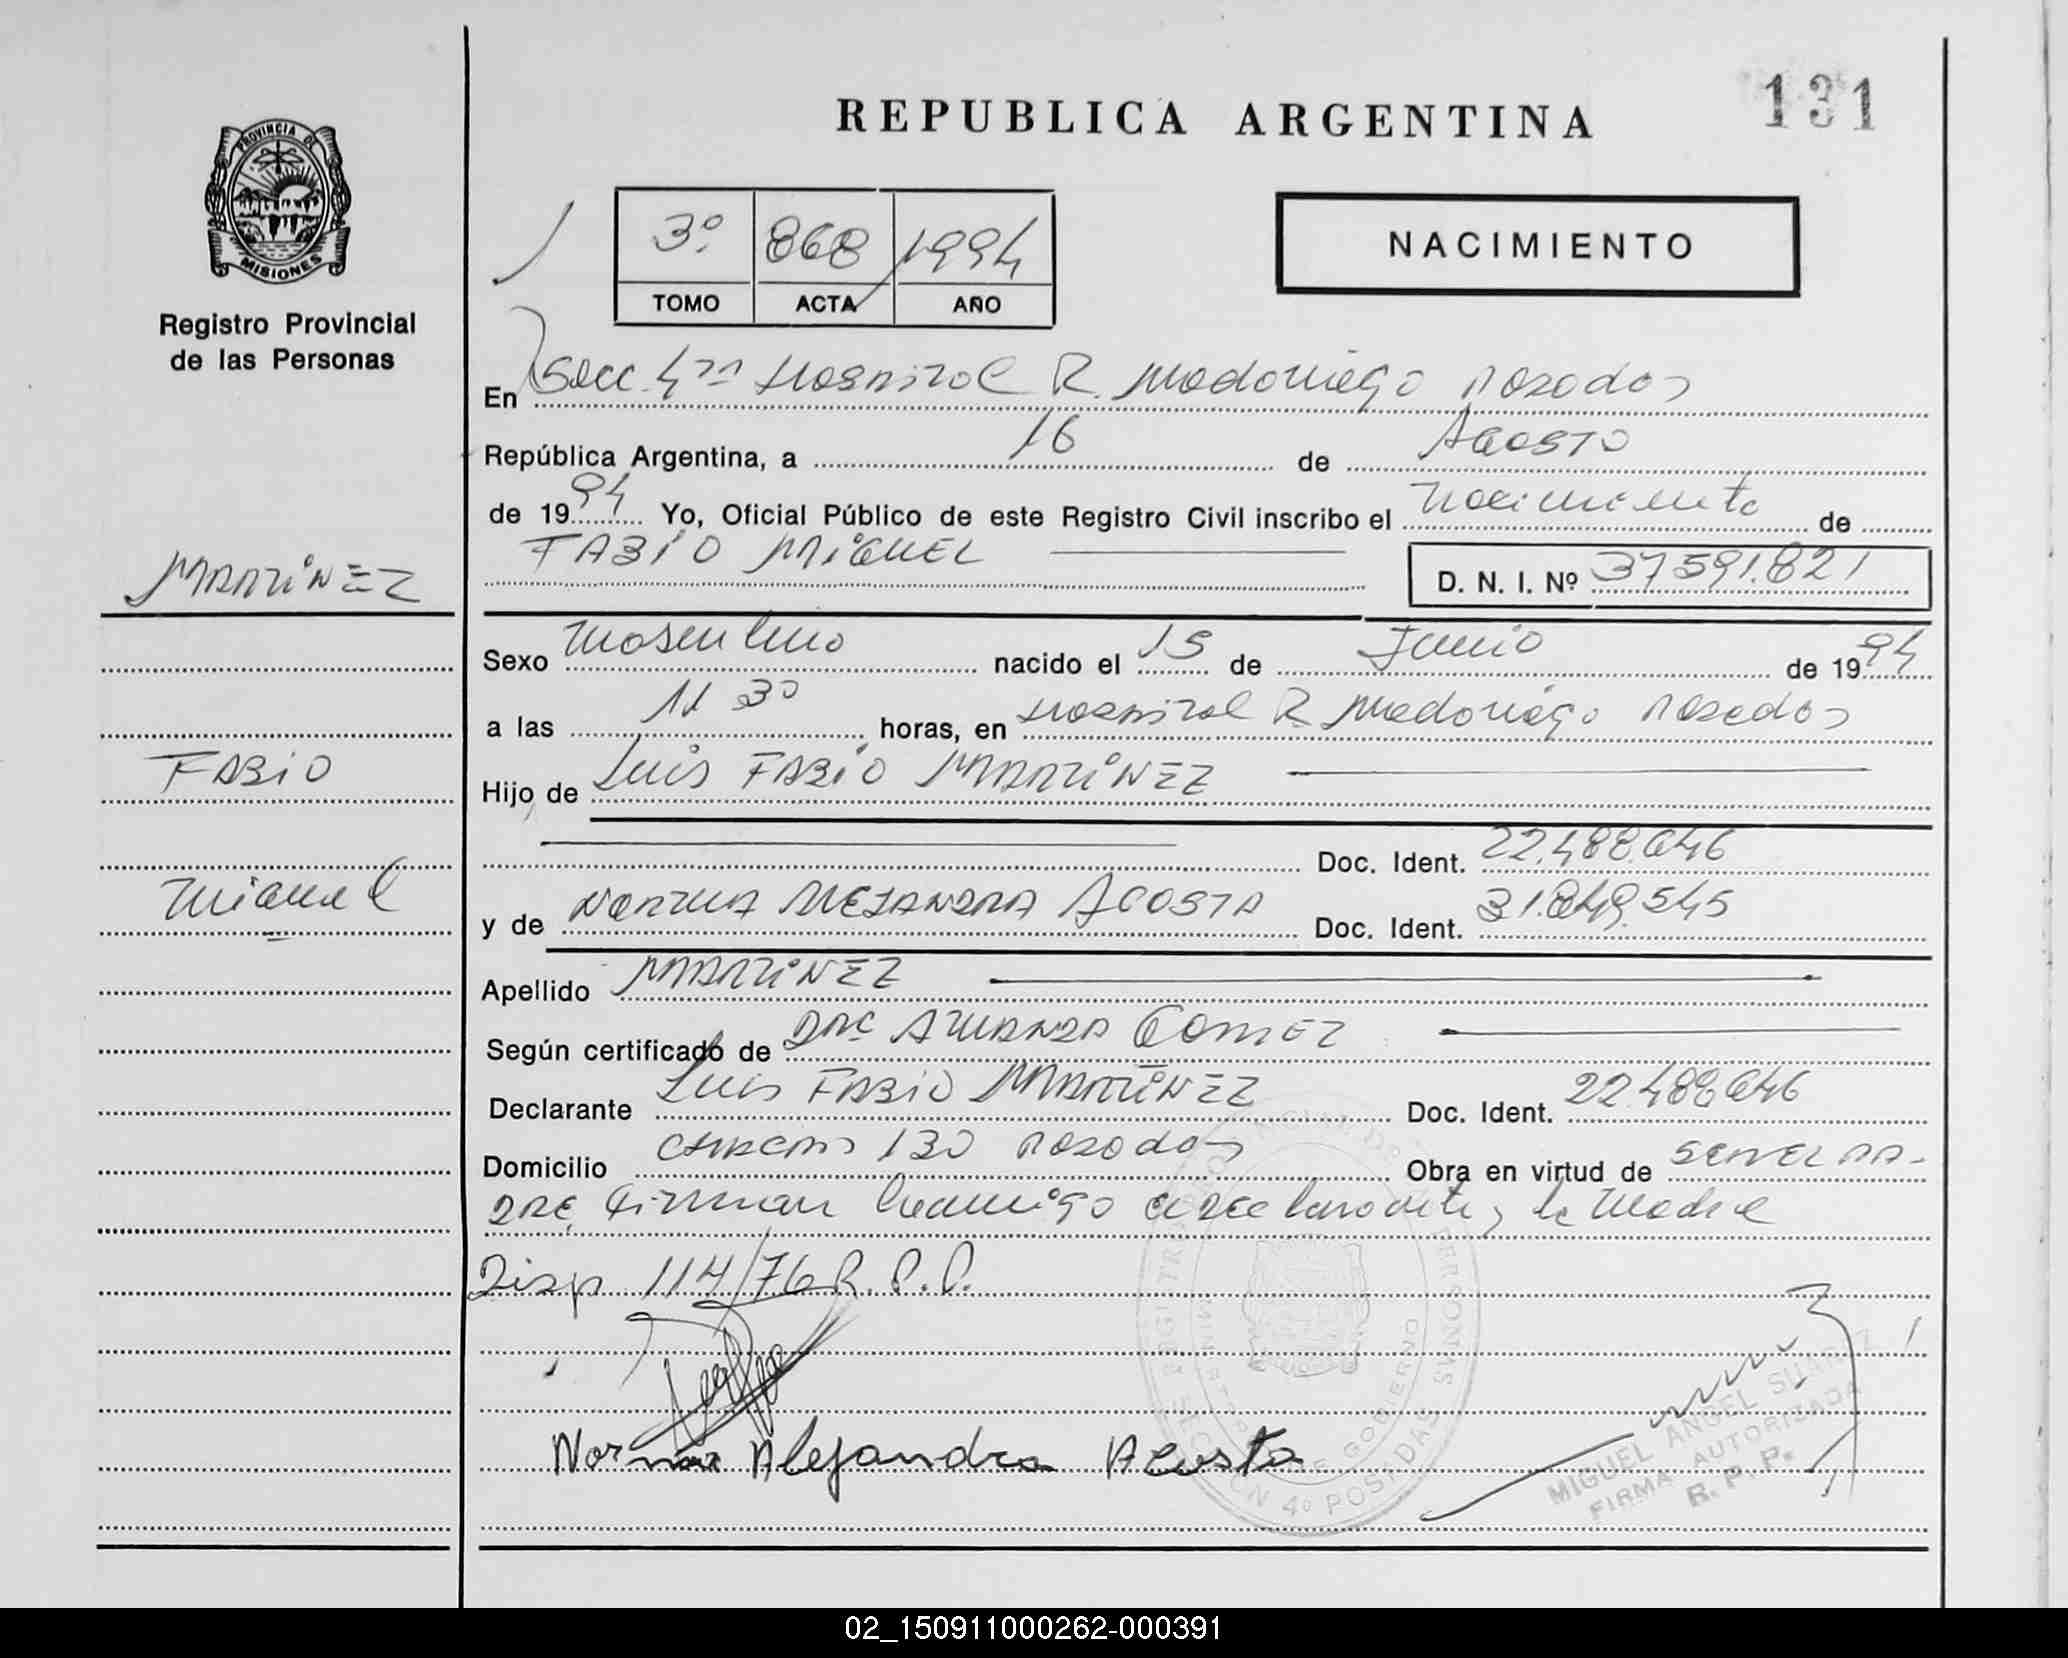 131
REPUBLICA ARGENTINA
PROVINCIA DE
MISIONES
3º 868 1994
TOMO ACTA AÑO
NACIMIENTO
Registro Provincial
de las Personas
En Secc. 4ta Hospital R. Madariaga Posadas
República Argentina, a 16 de Agosto
de 1994 Yo, Oficial Público de este Registro Civil inscribo el Nacimiento de
FABIO MIGUEL D. N. I. Nº 37591.821
MARTINEZ
Sexo Masculino nacido el 15 de Junio de 1994
a las 11 30 horas, en Hospital R Madariaga Posadas
FABIO
Hijo de Luis FABIO MARTINEZ
Doc. Ident. 22.488.646
Miguel
y de NORMA ALEJANDRA ACOSTA Doc. Ident. 31.849.545
Apellido MARTINEZ
Según certificado de AMANDA GOMEZ
Declarante Luis FABIO MARTINEZ Doc. Ident. 22.488.646
Domicilio 130 Posadas Obra en virtud de SER EL PA-
DRE Firman conmigo el declarante y la Madre
Disp 114/76 R.P.P.
Norma Alejandra Acosta
REGISTRO PROVINCIAL DE LAS PERSONAS
MINISTERIO DE GOBIERNO
SECCION 4º POSADAS
MIGUEL ANGEL SUAREZ
FIRMA AUTORIZADA
R. P. P.
02_150911000262-000391